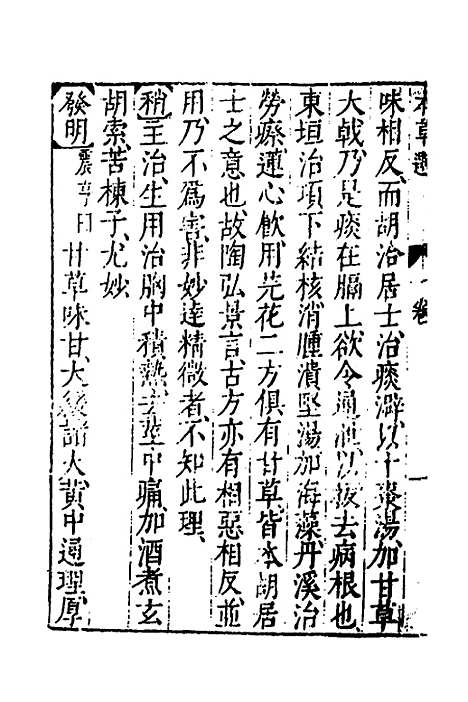 本草選 一卷 一
味相反而胡洽居士治痰澼以十棗湯加甘草
大戟乃是痰在膈上欲令通泄以拔去病根也
東垣治項下結核消腫潰堅湯加海藻丹溪治
勞瘵蓮心飲用芫花二方俱有甘草皆本胡居
士之意也故陶弘景言古方亦有相惡相反並
用乃不爲害非妙達精微者不知此理
稍主治生用治胸中積熱去莖中痛加酒煮玄
胡索苦楝子尤妙
發明震亨曰甘草味甘大緩諸火黄中通理厚